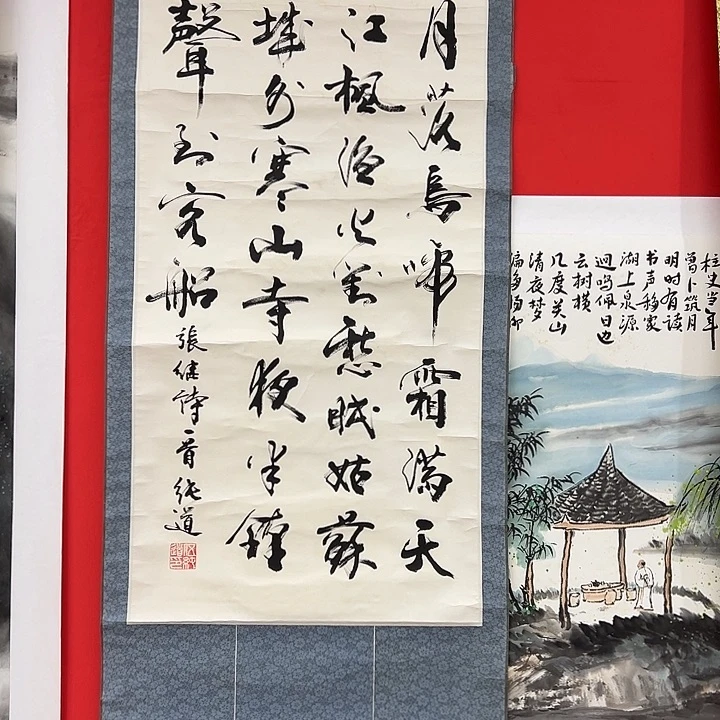 月落烏啼霜滿天
江楓漁火對愁眠姑蘇
城外寒山寺夜半鐘
聲到客船
張继诗一首纯道
柱史当年
曾卜筑月
明时有读
书声移家
湖上泉源
鸣佩日
云树横
几度关山
清夜梦